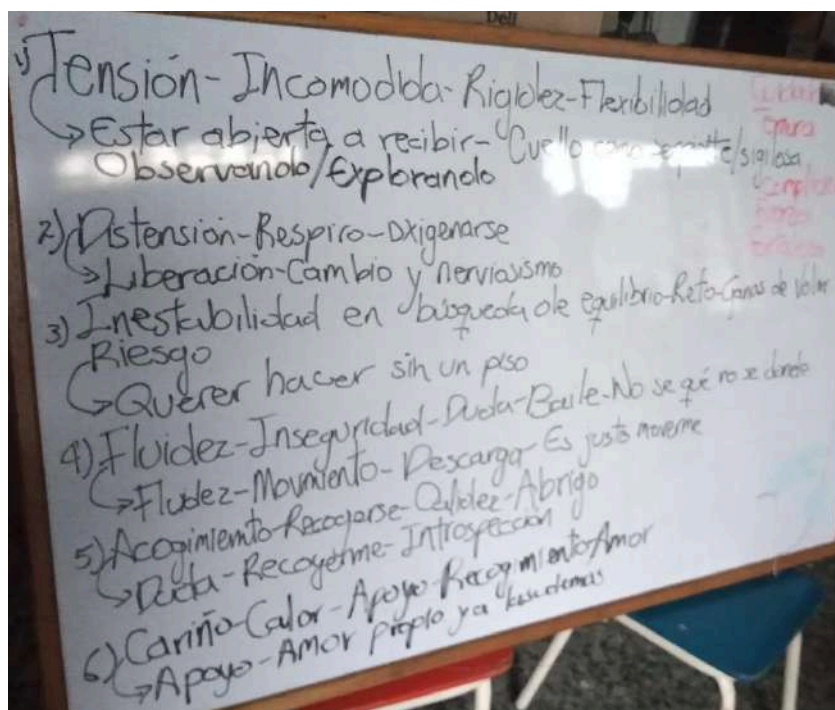 Dell
1) Tensión - Incomodida - Rigidez - Flexibilidad
→ Estar abierta a recibir - Cuello como serpiente/sigilosa
Observando/Explorando
2) Distensión - Respiro - Oxigenarse
→ Liberación - Cambio y nerviosismo
3) Inestabilidad en búsqueda de equilibrio - Reto - Ganas de volar
Riesgo
→ Querer hacer sin un piso
4) Fluidez - Inseguridad - Duda - Baile - No se qué no se donde
→ Fluidez - Movimiento - Descarga - Es justo moverme
5) Acogimiento - Recogerse - Calidez - Abrigo
→ Duda - Recogerme - Introspección
6) Cariño - Calor - Apoyo - Recogimiento - Amor
→ Apoyo - Amor propio y a demas